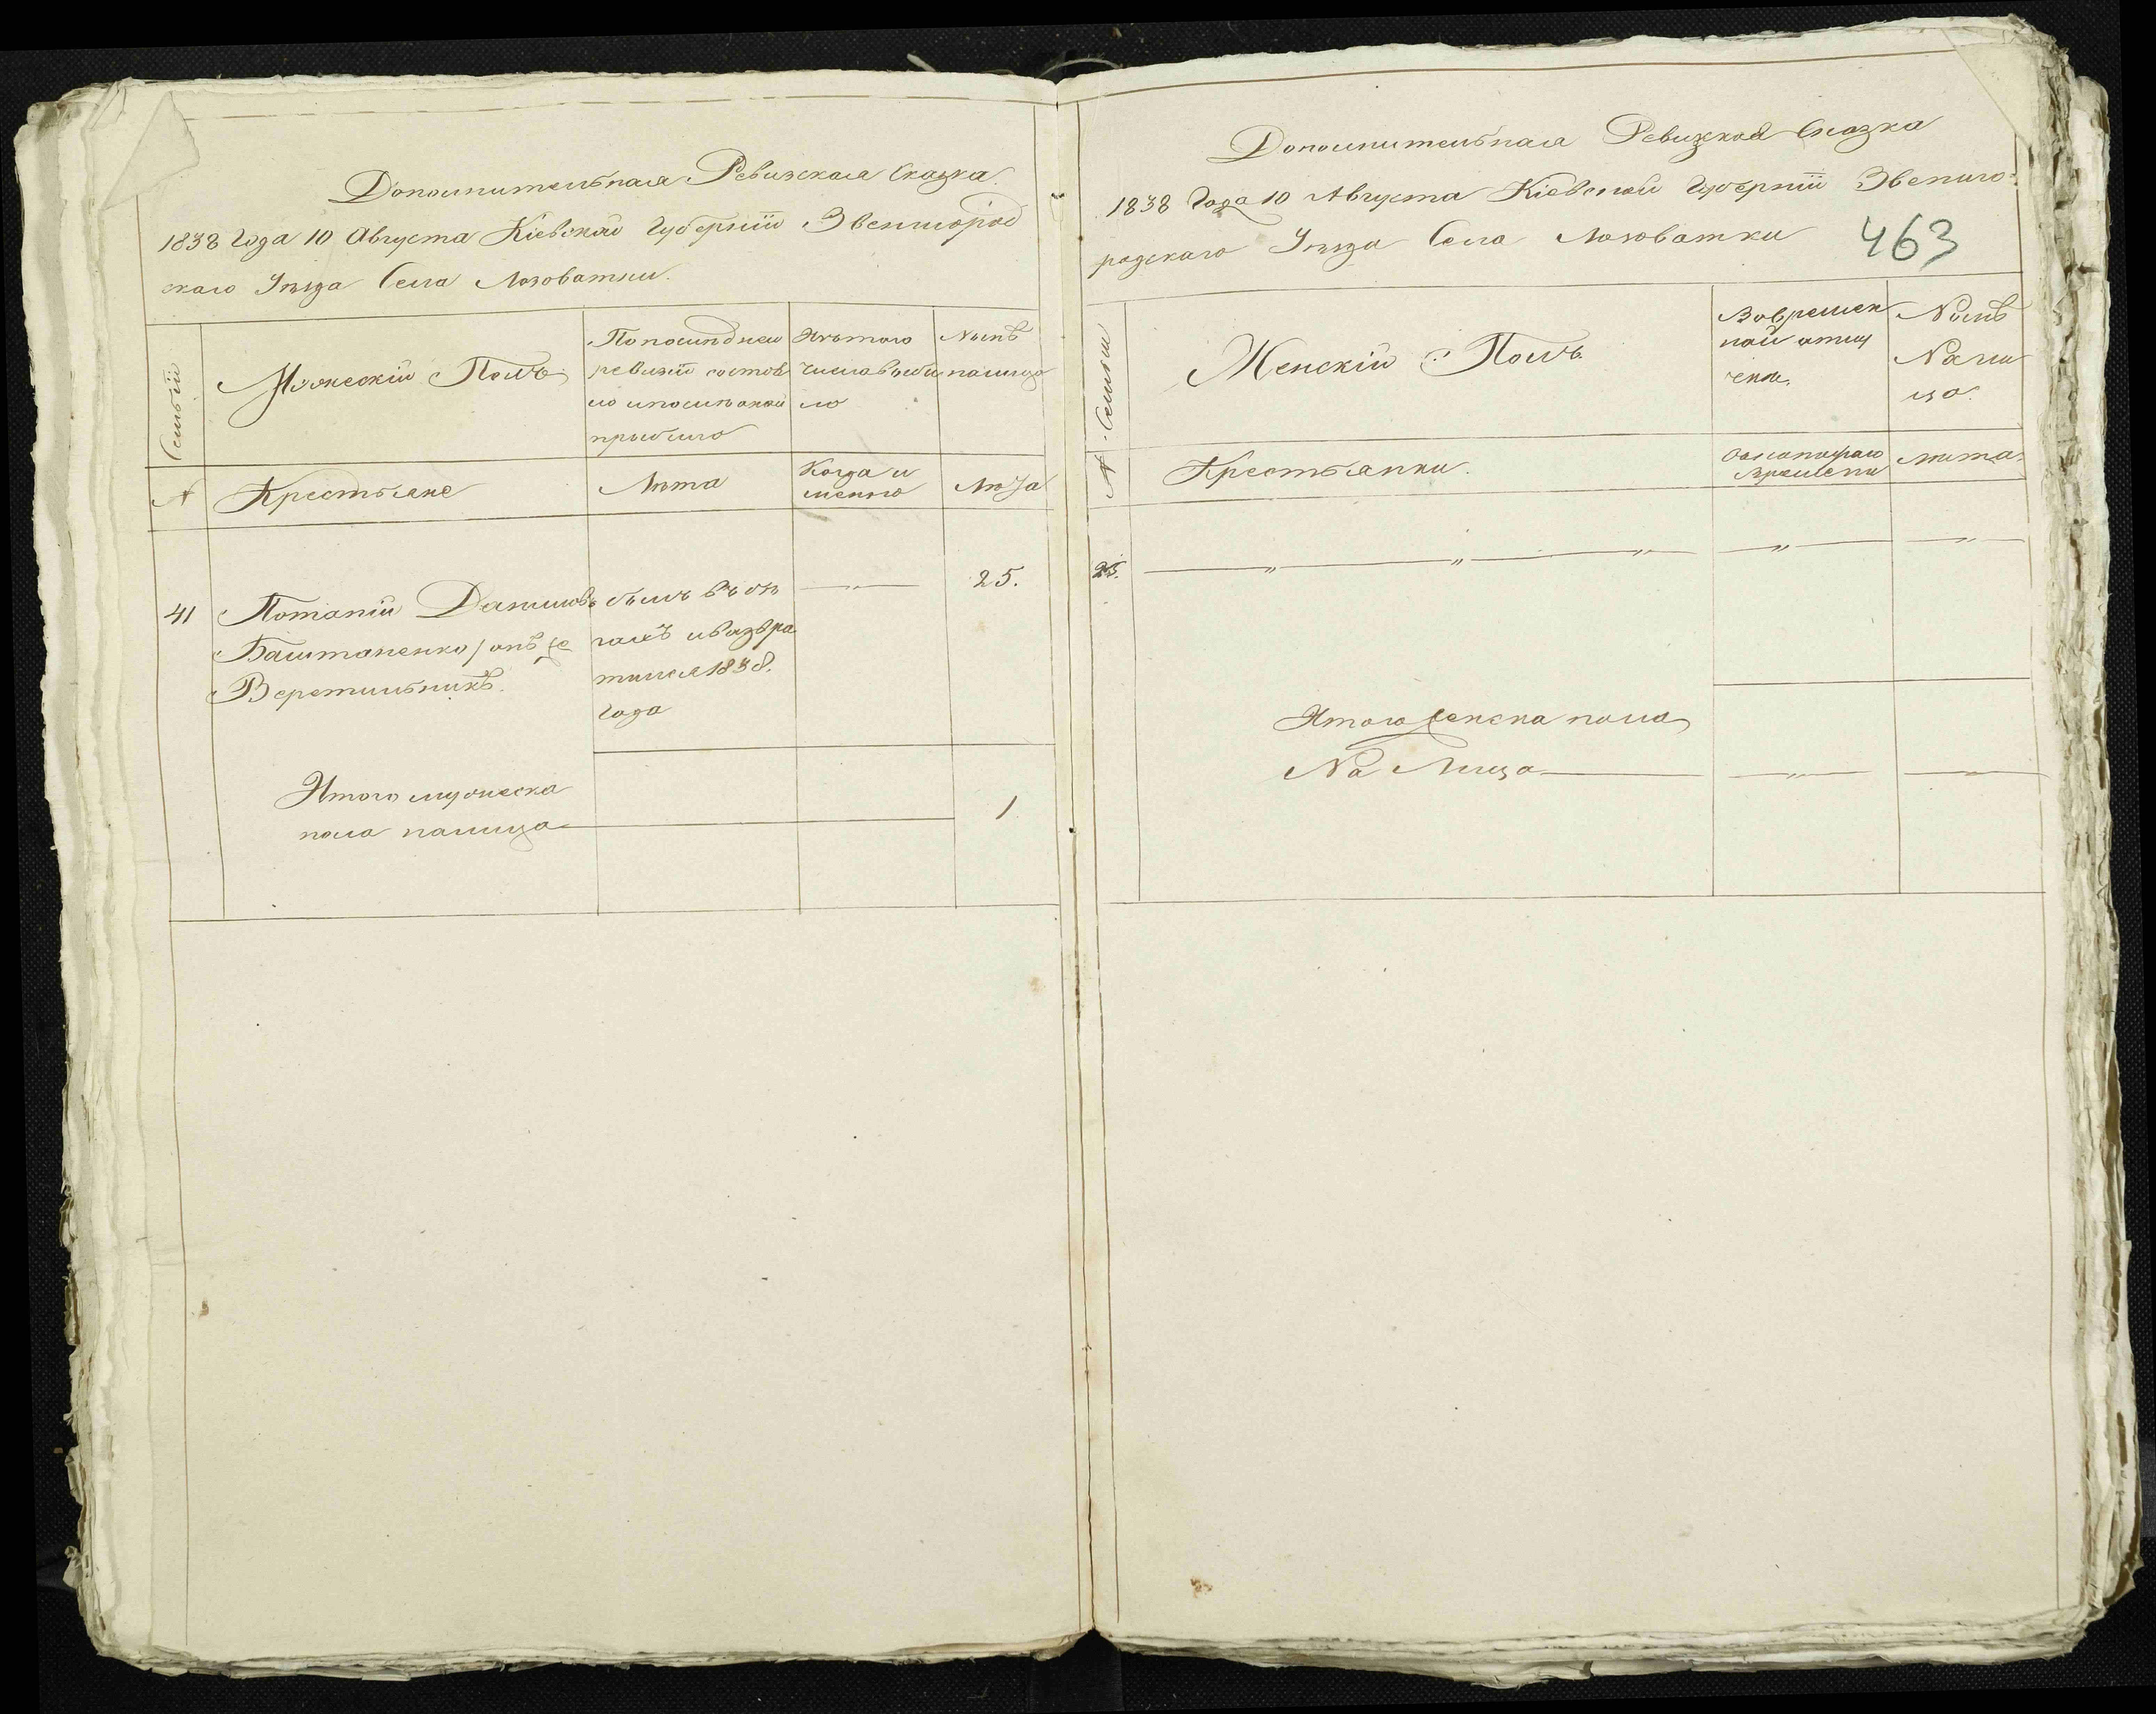 Дополнительная Ревизская Сказка
1838 Года 10 Августа Кіевской Губерніи Звенигород
скаго Уѣзда Села Лозоватки.
Семьи
Мужескій Полъ
По послѣдней
ревизіи состоя
ло и послѣ оной
прибыло
Изъ того
числа выбы
ло
Нынѣ
налицо
№
Крестьяне
Лѣта
Когда и
менно
Лѣта
41
Потапій Даниловъ
Баштаненко / онъ же
Веретильникъ.
былъ въ бѣ
гахъ и возвра
тился 1838.
Года
25.
Итого мужеска
пола налицо
1
Дополнительная Ревизская Сказка
1838 Года 10 Августа Кіевской Губерніи Звениго
родскаго Уѣзда Села Лозоватки
463
№ Семьи
Женскій Полъ
Во времен
ной отлу
чкѣ.
Нынѣ
На ли
цо.
Крестьянки.
Съ котораго
времени
лѣта
Итого женска пола
На Лицо